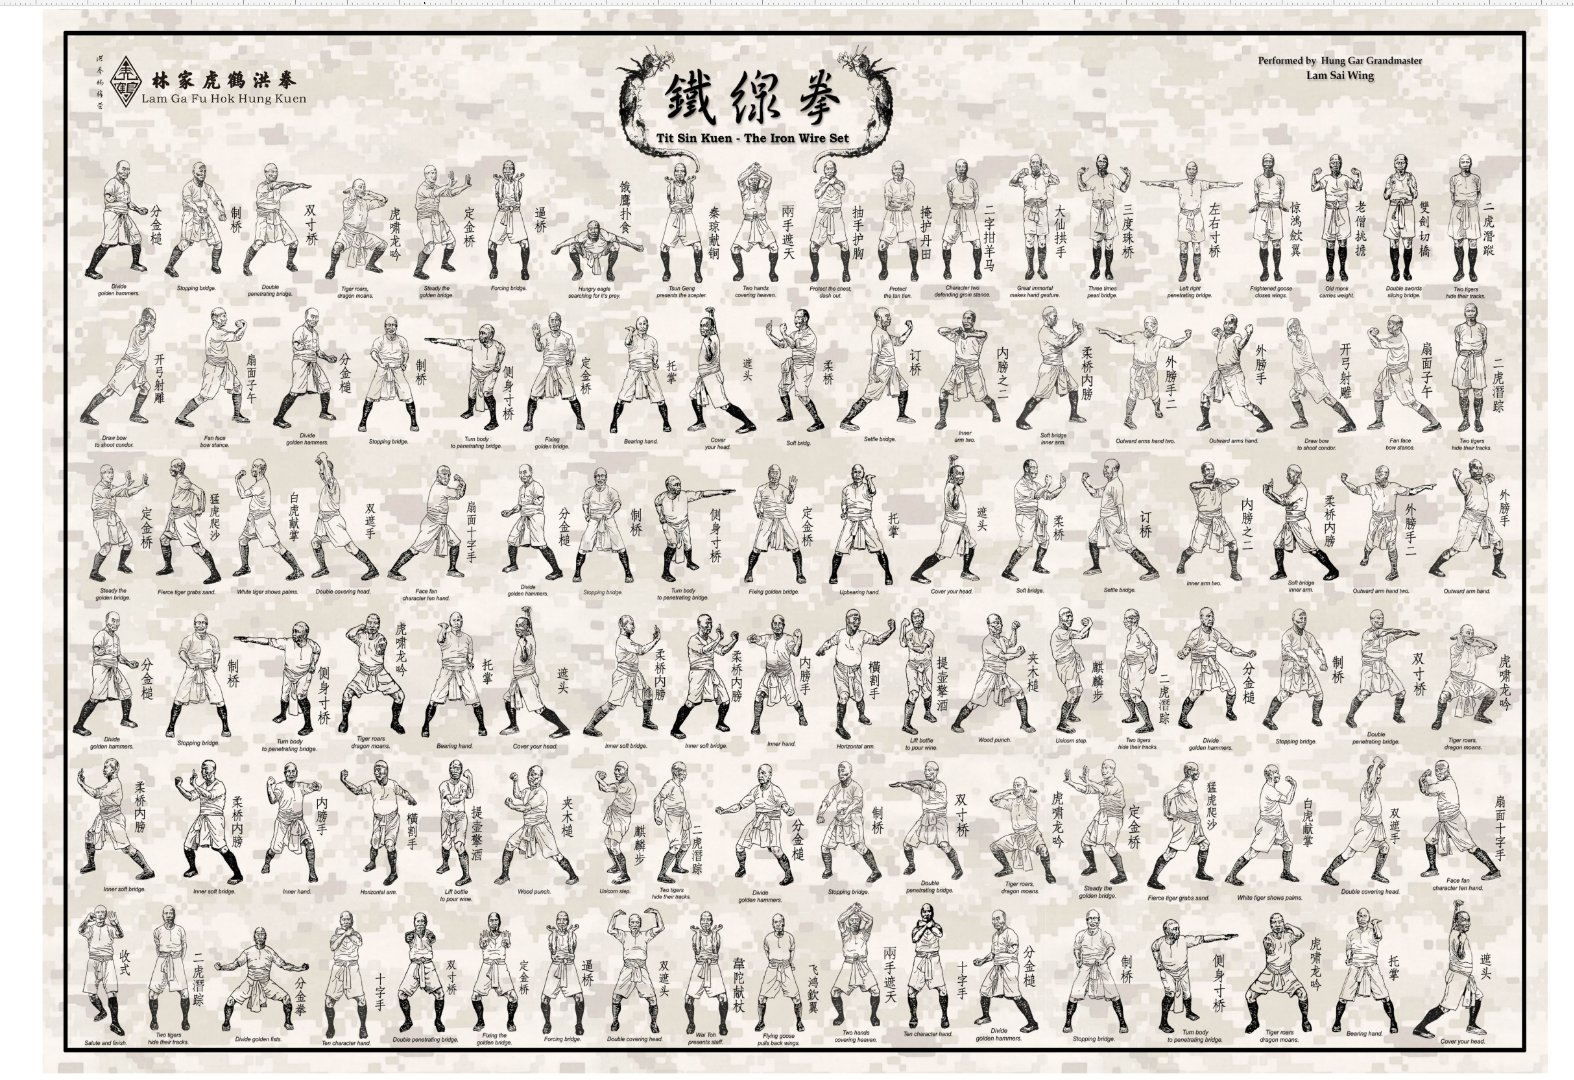 洪拳林祿營
林家虎鶴洪拳
Lam Ga Fu Hok Hung Kuen
鐵線拳
Tit Sin Kuen - The Iron Wire Set
Performed by Hung Gar Grandmaster
Lam Sai Wing
分金槌
Divide
golden hammers.
制桥
Stopping bridge.
双寸桥
Double
penetrating bridge.
虎啸龙吟
Tiger roars,
dragon moans.
定金桥
Steady the
golden bridge.
逼桥
Forcing bridge.
饿鹰扑食
Hungry eagle
searching for it's prey.
秦琼献锏
Tsun Geng
presents the scepter.
兩手遮天
Two hands
covering heaven.
抽手护胸
Protect the chest,
dash out.
掩护丹田
Protect
the tan tien.
二字拑羊马
Character two
defending groin stance.
大仙拱手
Great immortal
makes hand gesture.
三度珠桥
Three times
pearl bridge.
左右寸桥
Left right
penetrating bridge.
惊鸿敛翼
Frightened goose
closes wings.
老僧挑擔
Old monk
carries weight.
雙劍切橋
Double swords
slicing bridge.
二虎潛蹤
Two tigers
hide their tracks.
开弓射雕
Draw bow
to shoot condor.
扇面子午
Fan face
bow stance.
分金槌
Divide
golden hammers.
制桥
Stopping bridge.
侧身寸桥
Turn body
to penetrating bridge.
定金桥
Fixing
golden bridge.
托掌
Bearing hand.
遮头
Cover
your head.
柔桥
Soft bridg.
订桥
Settle bridge.
内膀之二
Inner
arm two.
柔桥内膀
Soft bridge
inner arm.
外膀手二
Outward arms hand two.
外膀手
Outward arms hand.
开弓射雕
Draw bow
to shoot condor.
扇面子午
Fan face
bow stance.
二虎潛踪
Two tigers
hide their tracks.
定金桥
Steady the
golden bridge.
猛虎爬沙
Fierce tiger grabs sand.
白虎献掌
White tiger shows palms.
双遮手
Double covering head.
扇面十字手
Face fan
character ten hand.
分金槌
Divide
golden hammers.
制桥
Stopping bridge.
侧身寸桥
Turn body
to penetrating bridge.
定金桥
Fixing golden bridge.
托掌
Upbearing hand.
遮头
Cover your head.
柔桥
Soft bridge.
订桥
Settle bridge.
内膀之二
Inner arm two.
柔桥内膀
Soft bridge
inner arm.
外膀手二
Outward arm hand two.
外膀手
Outward arm hand.
分金槌
Divide
golden hammers.
制桥
Stopping bridge.
侧身寸桥
Turn body
to penetrating bridge.
虎啸龙吟
Tiger roars
dragon moans.
托掌
Bearing hand.
遮头
Cover your head.
柔桥内膀
Inner soft bridge.
柔桥内膀
Inner soft bridge.
内膀手
Inner hand.
橫割手
Horizontal arm.
提壶擎酒
Lift bottle
to pour wine.
夹木槌
Wood punch.
麒麟步
Unicorn step.
二虎潛踪
Two tigers
hide their tracks.
分金槌
Divide
golden hammers.
制桥
Stopping bridge.
双寸桥
Double
penetrating bridge.
虎啸龙吟
Tiger roars,
dragon moans.
柔桥内膀
Inner soft bridge.
柔桥内膀
Inner soft bridge.
内膀手
Inner hand.
橫割手
Horizontal arm.
提壶擎酒
Lift bottle
to pour wine.
夹木槌
Wood punch.
麒麟步
Unicorn step.
二虎潛踪
Two tigers
hide their tracks.
分金槌
Divide
golden hammers.
制桥
Stopping bridge.
双寸桥
Double
penetrating bridge.
虎啸龙吟
Tiger roars,
dragon moans.
定金桥
Steady the
golden bridge.
猛虎爬沙
Fierce tiger grabs sand.
白虎献掌
White tiger shows palms.
双遮手
Double covering head.
扇面十字手
Face fan
character ten hand.
收式
Salute and finish.
二虎潛踪
Two tigers
hide their tracks.
分金拳
Divide golden fists.
十字手
Ten character hand.
双寸桥
Double penetrating bridge.
定金桥
Fixing the
golden bridge.
逼桥
Forcing bridge.
双遮头
Double covering head.
韋陀献杖
Wai Toh
presents staff.
飞鸿歛翼
Flying goose
pulls back wings.
兩手遮天
Two hands
covering heaven.
十字手
Ten character hand.
分金槌
Divide
golden hammers.
制桥
Stopping bridge.
侧身寸桥
Turn body
to penetrating bridge.
虎啸龙吟
Tiger roars
dragon moans.
托掌
Bearing hand.
遮头
Cover your head.